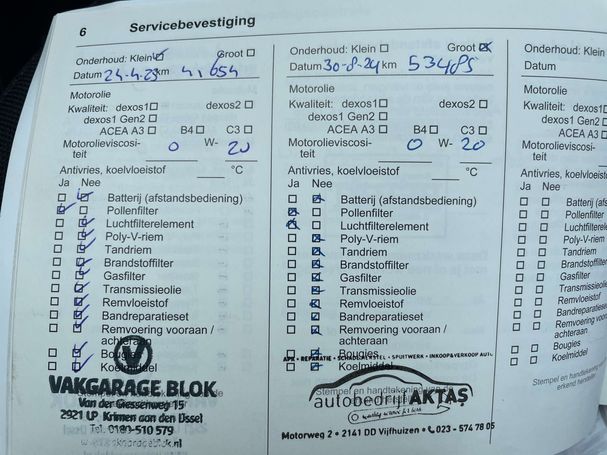 6 Servicebevestiging
Onderhoud: Klein ☑ Groot ☐
Datum 24-4-23 km 41654
Motorolie
Kwaliteit: dexos1 ☐ dexos2 ☐
dexos1 Gen2 ☐
ACEA A3 ☐ B4 ☐ C3 ☐
Motorolieviscosi-
teit 0 W- 20
Antivries, koelvloeistof °C
Ja Nee
☐ ☑ Batterij (afstandsbediening)
☑ ☐ Pollenfilter
☐ ☑ Luchtfilterelement
☐ ☑ Poly-V-riem
☐ ☑ Tandriem
☐ ☑ Brandstoffilter
☐ ☑ Gasfilter
☐ ☑ Transmissieolie
☐ ☑ Remvloeistof
☐ ☑ Bandreparatieset
☐ ☑ Remvoering vooraan /
achteraan
☐ ☑ Bougies
☐ ☑ Koelmiddel
VAKGARAGE BLOK
Van der Giessenweg 15
2921 LP Krimpen aan den IJssel
Tel. 0180-510579
Onderhoud: Klein ☐ Groot ☒
Datum 30-8-24 km 53485
Motorolie
Kwaliteit: dexos1 ☐ dexos2 ☐
dexos1 Gen2 ☐
ACEA A3 ☐ B4 ☐ C3 ☐
Motorolieviscosi-
teit 0 W- 20
Antivries, koelvloeistof °C
Ja Nee
☐ ☒ Batterij (afstandsbediening)
☒ ☐ Pollenfilter
☒ ☐ Luchtfilterelement
☐ ☒ Poly-V-riem
☐ ☒ Tandriem
☐ ☒ Brandstoffilter
☐ ☒ Gasfilter
☐ ☒ Transmissieolie
☐ ☒ Remvloeistof
☐ ☒ Bandreparatieset
☐ ☒ Remvoering vooraan /
achteraan
☐ ☒ Bougies
☐ ☒ Koelmiddel
APK - REPARATIE - SCHADEHERSTEL - SPUITWERK - INKOOP&VERKOOP AUTO
Stempel en handtekening van de
autobedrijf AKTAŞ
Motorweg 2 • 2141 DD Vijfhuizen • 023 - 574 78 05
Onderhoud: Klein
Datum
Motorolie
Kwaliteit: dexos1
dexos1 Gen2
ACEA A3
Motorolieviscosi-
teit
Antivries, koelvloeistof
Ja Nee
☐ ☐ Batterij (afsta
☐ ☐ Pollenfilter
☐ ☐ Luchtfilterelem
☐ ☐ Poly-V-riem
☐ ☐ Tandriem
☐ ☐ Brandstoffilter
☐ ☐ Gasfilter
☐ ☐ Transmissieol
☐ ☐ Remvloeistof
☐ ☐ Bandreparatie
☐ ☐ Remvoering v
achteraan
☐ ☐ Bougies
☐ ☐ Koelmiddel
Stempel en handtekening
erkend herstell